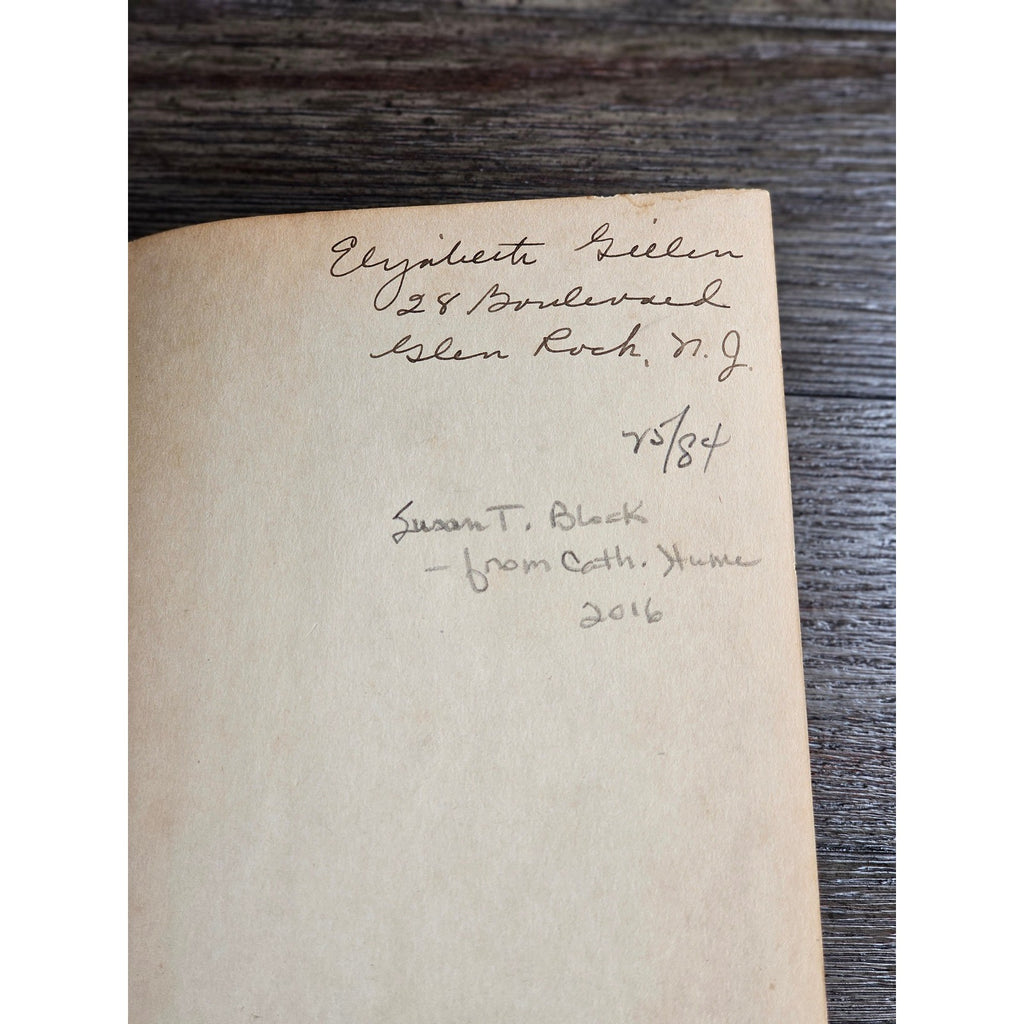 Elizabeth Gielen
28 Boulevard
Glen Rock, N.J.
25/84
Susan T. Block
- from Cath. Hume
2016